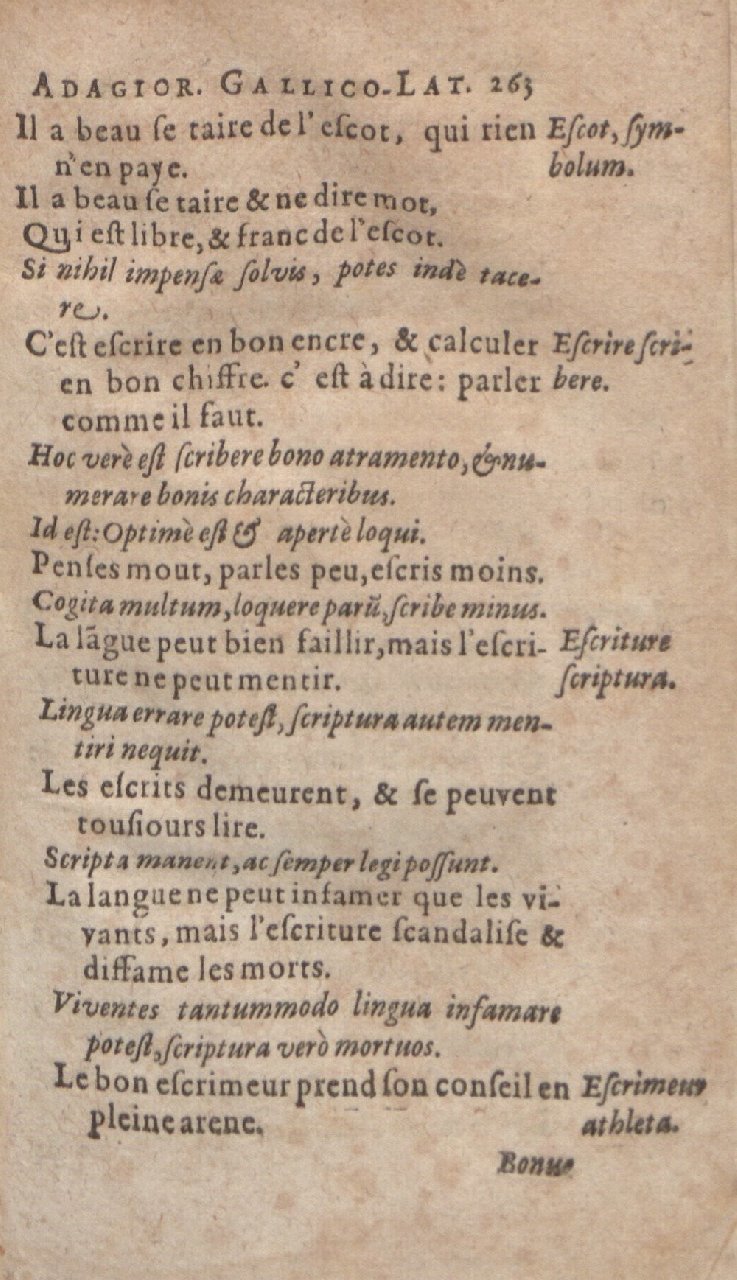 ADAGIOR. GALLICO-LAT. 263
Il a beau ſe taire de l'eſcot, qui rien
n'en paye.
Eſcot, ſym-
bolum.
Il a beau ſe taire & ne dire mot,
Qui eſt libre, & franc de l'eſcot.
Si nihil impenſæ ſolvis, potes indè tace-
re.
C'eſt eſcrire en bon encre, & calculer
en bon chiffre. c' eſt à dire: parler
comme il faut.
Eſcrire ſcri-
bere.
Hoc verè eſt ſcribere bono atramento, & nu-
merare bonis characteribus.
Id eſt: Optimè eſt & apertè loqui.
Penſes mout, parles peu, eſcris moins.
Cogita multum, loquere parũ, ſcribe minus.
La lãgue peut bien faillir, mais l'eſcri-
ture ne peut mentir.
Eſcriture
ſcriptura.
Lingua errare poteſt, ſcriptura autem men-
tiri nequit.
Les eſcrits demeurent, & ſe peuvent
touſiours lire.
Scripta manent, ac ſemper legi poſſunt.
La langue ne peut infamer que les vi-
vants, mais l'eſcriture ſcandaliſe &
diffame les morts.
Viventes tantummodo lingua infamare
poteſt, ſcriptura verò mortuos.
Le bon eſcrimeur prend ſon conſeil en
pleine arene.
Eſcrimeur
athleta.
Bonus